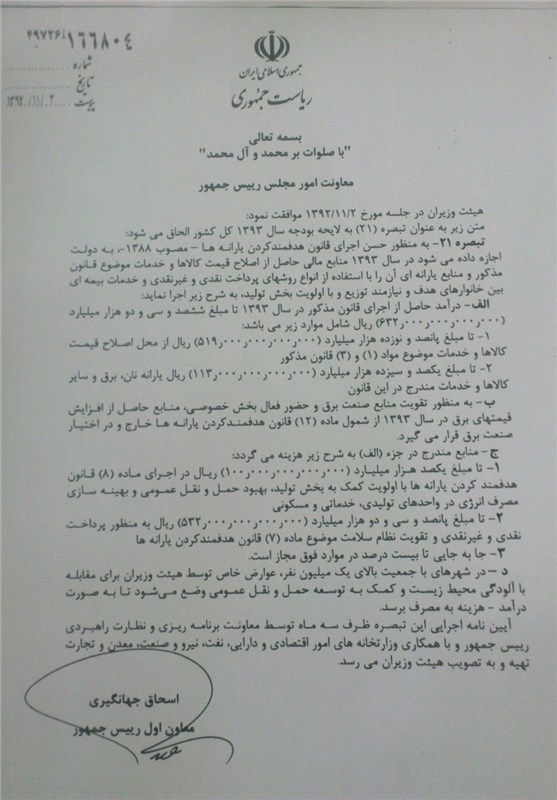 ۱۶۶۸۰۴/ت۴۹۷۲۶
شماره
تاریخ
پیوست ۱۳۹۲/۱۱/۰۲
جمهوری اسلامی ایران
ریاست جمهوری
بسمه تعالی
"با صلوات بر محمد و آل محمد"
معاونت امور مجلس رییس جمهور
هیئت وزیران در جلسه مورخ ۱۳۹۲/۱۱/۲ موافقت نمود:
متن زیر به عنوان تبصره (۲۱) به لایحه بودجه سال ۱۳۹۳ کل کشور الحاق می شود:
تبصره ۲۱- به منظور حسن اجرای قانون هدفمندکردن یارانه ها – مصوب ۱۳۸۸ –، به دولت
اجازه داده می شود در سال ۱۳۹۳ منابع مالی حاصل از اصلاح قیمت کالاها و خدمات موضوع قانون
مذکور و منابع یارانه ای آن را با استفاده از انواع روشهای پرداخت نقدی و غیرنقدی و خدمات بیمه ای
بین خانوارهای هدف و نیازمند توزیع و با اولویت بخش تولید، به شرح زیر اجرا نماید:
الف- درآمد حاصل از اجرای قانون مذکور در سال ۱۳۹۳ تا مبلغ ششصد و سی و دو هزار میلیارد
(۶۳۲٫۰۰۰٫۰۰۰٫۰۰۰٫۰۰۰) ریال شامل موارد زیر می باشد:
۱- تا مبلغ پانصد و نوزده هزار میلیارد (۵۱۹٫۰۰۰٫۰۰۰٫۰۰۰٫۰۰۰) ریال از محل اصلاح قیمت
کالاها و خدمات موضوع مواد (۱) و (۳) قانون مذکور
۲- تا مبلغ یکصد و سیزده هزار میلیارد (۱۱۳٫۰۰۰٫۰۰۰٫۰۰۰٫۰۰۰) ریال یارانه نان، برق و سایر
کالاها و خدمات مندرج در این قانون
ب- به منظور تقویت منابع صنعت برق و حضور فعال بخش خصوصی، منابع حاصل از افزایش
قیمتهای برق در سال ۱۳۹۳ از شمول ماده (۱۲) قانون هدفمندکردن یارانه ها خارج و در اختیار
صنعت برق قرار می گیرد.
ج- منابع مندرج در جزء (الف) به شرح زیر هزینه می گردد:
۱- تا مبلغ یکصد هزار میلیارد (۱۰۰٫۰۰۰٫۰۰۰٫۰۰۰٫۰۰۰) ریال در اجرای ماده (۸) قانون
هدفمند کردن یارانه ها با اولویت کمک به بخش تولید، بهبود حمل و نقل عمومی و بهینه سازی
مصرف انرژی در واحدهای تولیدی، خدماتی و مسکونی
۲- تا مبلغ پانصد و سی و دو هزار میلیارد (۵۳۲٫۰۰۰٫۰۰۰٫۰۰۰٫۰۰۰) ریال به منظور پرداخت
نقدی و غیرنقدی و تقویت نظام سلامت موضوع ماده (۷) قانون هدفمندکردن یارانه ها
۳- جا به جایی تا بیست درصد در موارد فوق مجاز است.
د – در شهرهای با جمعیت بالای یک میلیون نفر، عوارض خاص توسط هیئت وزیران برای مقابله
با آلودگی محیط زیست و کمک به توسعه حمل و نقل عمومی وضع می‌شود تا به صورت
درآمد - هزینه به مصرف برسد.
آیین نامه اجرایی این تبصره ظرف سه ماه توسط معاونت برنامه ریزی و نظارت راهبردی
رییس جمهور و با همکاری وزارتخانه های امور اقتصادی و دارایی، نفت، نیرو و صنعت، معدن و تجارت
تهیه و به تصویب هیئت وزیران می رسد.
اسحاق جهانگیری
معاون اول رییس جمهور